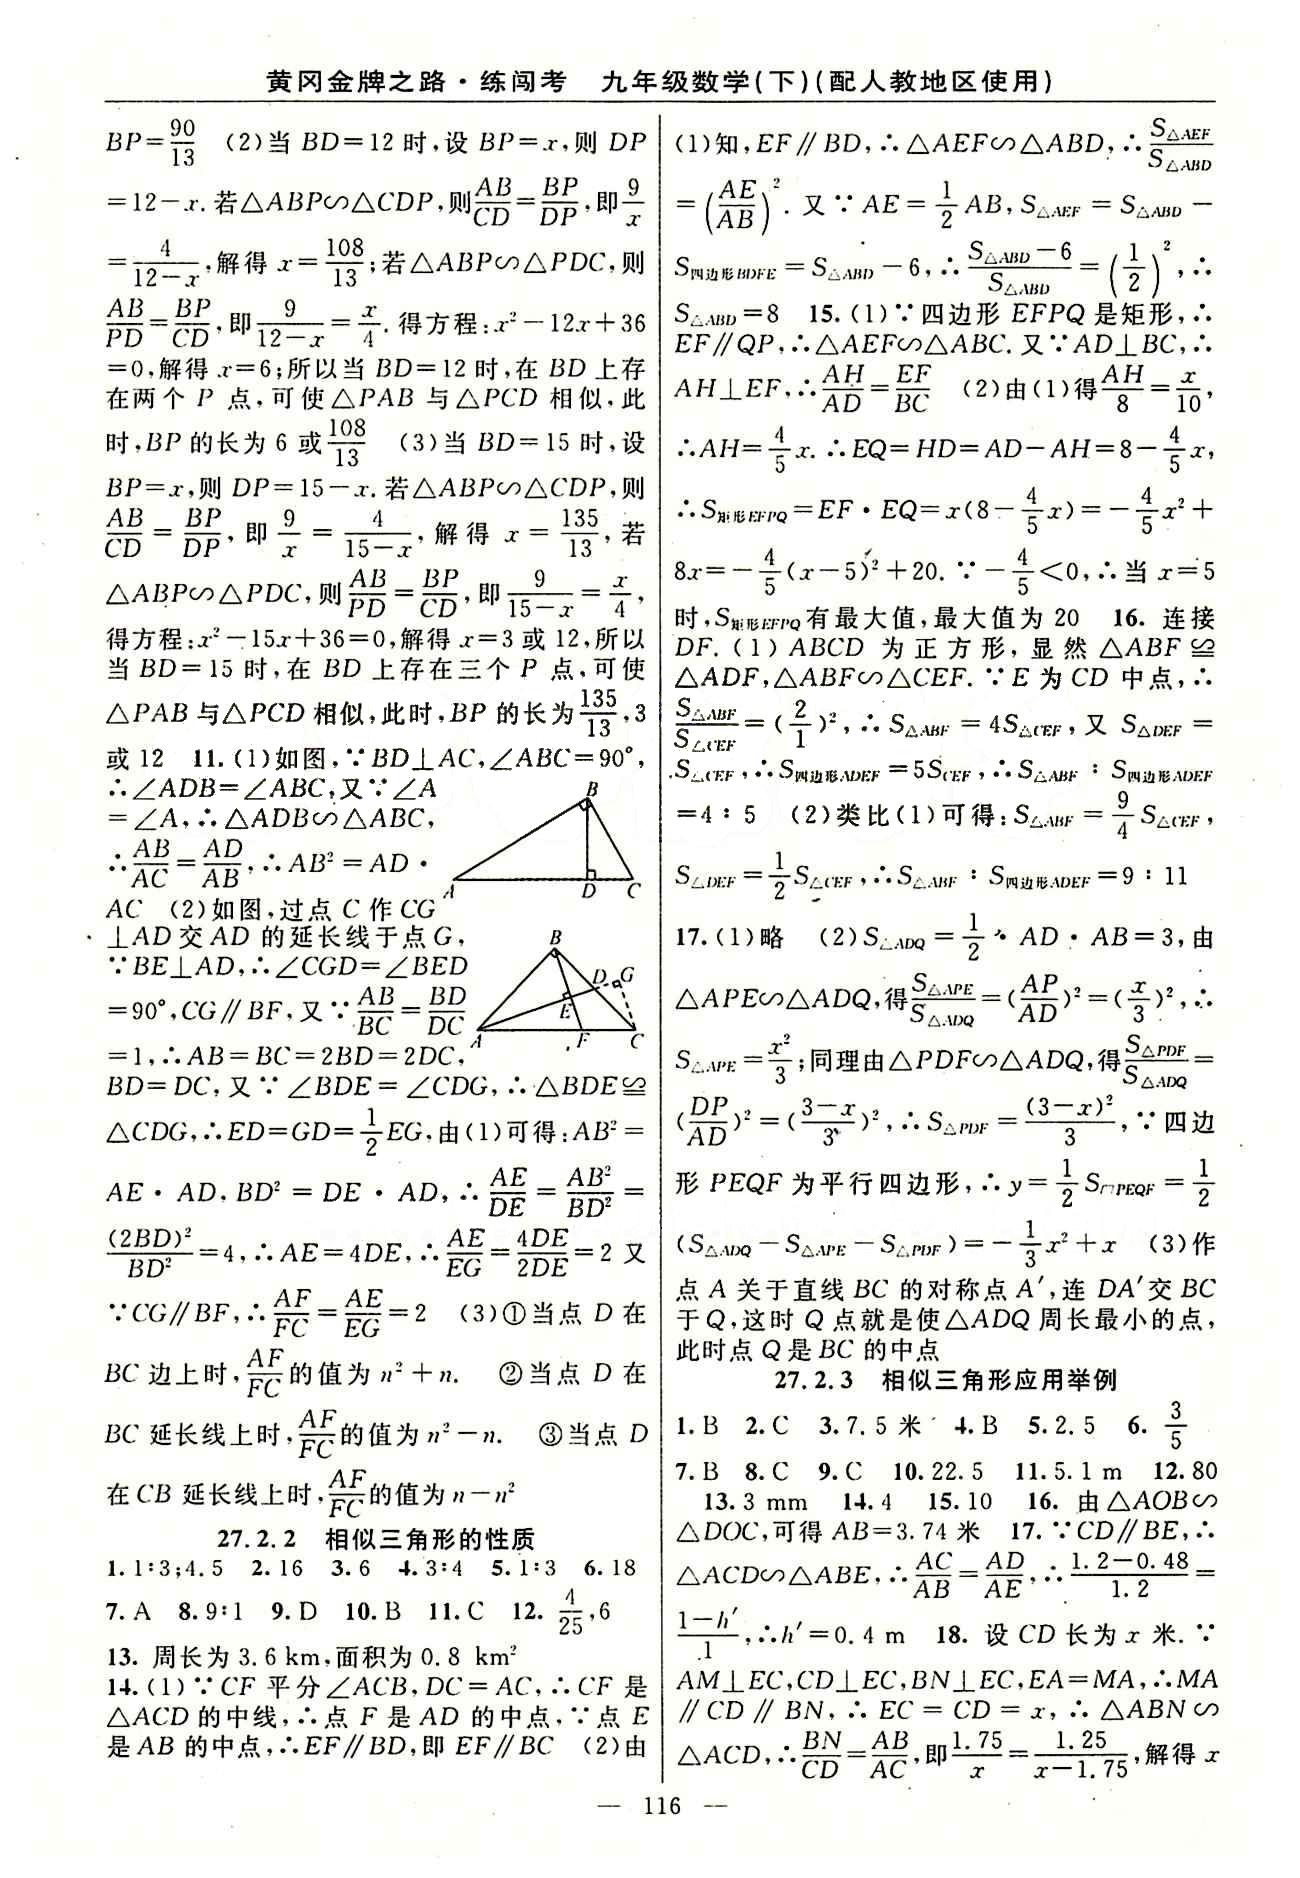 黄冈金牌之路·练闯考　九年级数学(下)(配人教地区使用)
BP=90/13　(2)当 BD=12 时,设 BP=x,则 DP
=12-x.若△ABP∽△CDP,则AB/CD=BP/DP,即9/x
=4/(12-x),解得 x=108/13;若△ABP∽△PDC,则
AB/PD=BP/CD,即9/(12-x)=x/4.得方程:x²-12x+36
=0,解得 x=6;所以当 BD=12 时,在 BD 上存
在两个 P 点,可使△PAB 与△PCD 相似,此
时,BP 的长为 6 或108/13　(3)当 BD=15 时,设
BP=x,则 DP=15-x.若△ABP∽△CDP,则
AB/CD=BP/DP,即9/x=4/(15-x),解得 x=135/13,若
△ABP∽△PDC,则AB/PD=BP/CD,即9/(15-x)=x/4,
得方程:x²-15x+36=0,解得 x=3 或 12,所以
当 BD=15 时,在 BD 上存在三个 P 点,可使
△PAB 与△PCD 相似,此时,BP 的长为135/13,3
或 12　11.(1)如图,∵BD⊥AC,∠ABC=90°,
∴∠ADB=∠ABC,又∵∠A
=∠A,∴△ADB∽△ABC,
∴AB/AC=AD/AB,∴AB²=AD·
AC　(2)如图,过点 C 作 CG
⊥AD 交 AD 的延长线于点 G,
∵BE⊥AD,∴∠CGD=∠BED
=90°,CG∥BF,又∵AB/BC=BD/DC
=1,∴AB=BC=2BD=2DC,
BD=DC,又∵∠BDE=∠CDG,∴△BDE≌
△CDG,∴ED=GD=1/2EG,由(1)可得:AB²=
AE·AD,BD²=DE·AD,∴AE/DE=AB²/BD²=
(2BD)²/BD²=4,∴AE=4DE,∴AE/EG=4DE/2DE=2 又
∵CG∥BF,∴AF/FC=AE/EG=2　(3)①当点 D 在
BC 边上时,AF/FC的值为 n²+n.　②当点 D 在
BC 延长线上时,AF/FC的值为 n²-n.　③当点 D
在 CB 延长线上时,AF/FC的值为 n-n²
B
A D C
B
D G
E
A F C
27.2.2　相似三角形的性质
1.1∶3;4.5　2.16　3.6　4.3∶4　5.1∶3　6.18
7.A　8.9∶1　9.D　10.B　11.C　12.4/25,6
13.周长为 3.6 km,面积为 0.8 km²
14.(1)∵CF 平分∠ACB,DC=AC,∴CF 是
△ACD 的中线,∴点 F 是 AD 的中点,∵点 E
是 AB 的中点,∴EF∥BD,即 EF∥BC　(2)由
(1)知,EF∥BD,∴△AEF∽△ABD,∴S△AEF/S△ABD
=(AE/AB)².又∵AE=1/2AB,S△AEF=S△ABD-
S四边形BDFE=S△ABD-6,∴(S△ABD-6)/S△ABD=(1/2)²,∴
S△ABD=8　15.(1)∵四边形 EFPQ 是矩形,∴
EF∥QP,∴△AEF∽△ABC.又∵AD⊥BC,∴
AH⊥EF,∴AH/AD=EF/BC　(2)由(1)得AH/8=x/10,
∴AH=4/5x.∴EQ=HD=AD-AH=8-4/5x,
∴S矩形EFPQ=EF·EQ=x(8-4/5x)=-4/5x²+
8x=-4/5(x-5)²+20.∵-4/5<0,∴当 x=5
时,S矩形EFPQ有最大值,最大值为 20　16.连接
DF.(1)ABCD 为正方形,显然△ABF≌
△ADF,△ABF∽△CEF.∵E 为 CD 中点,∴
S△ABF/S△CEF=(2/1)²,∴S△ABF=4S△CEF,又 S△DEF=
S△CEF,∴S四边形ADEF=5SCEF,∴S△ABF∶S四边形ADEF
=4∶5　(2)类比(1)可得:S△ABF=9/4S△CEF,
S△DEF=1/2S△CEF,∴S△ABF∶S四边形ADEF=9∶11
17.(1)略　(2)S△ADQ=1/2·AD·AB=3,由
△APE∽△ADQ,得S△APE/S△ADQ=(AP/AD)²=(x/3)²,∴
S△APE=x²/3;同理由△PDF∽△ADQ,得S△PDF/S△ADQ=
(DP/AD)²=((3-x)/3)²,∴S△PDF=(3-x)²/3,∵四边
形 PEQF 为平行四边形,∴y=1/2S▱PEQF=1/2
(S△ADQ-S△APE-S△PDF)=-1/3x²+x　(3)作
点 A 关于直线 BC 的对称点 A′,连 DA′交 BC
于 Q,这时 Q 点就是使△ADQ 周长最小的点,
此时点 Q 是 BC 的中点
27.2.3　相似三角形应用举例
1.B　2.C　3.7.5 米　4.B　5.2.5　6.3/5
7.B　8.C　9.C　10.22.5　11.5.1 m　12.80
13.3 mm　14.4　15.10　16.由△AOB∽
△DOC,可得 AB=3.74 米　17.∵CD∥BE,∴
△ACD∽△ABE,∴AC/AB=AD/AE,∴(1.2-0.48)/1.2=
(1-h′)/1,∴h′=0.4 m　18.设 CD 长为 x 米.∵
AM⊥EC,CD⊥EC,BN⊥EC,EA=MA,∴MA
∥CD∥BN,∴EC=CD=x,∴△ABN∽
△ACD,∴BN/CD=AB/AC,即1.75/x=1.25/(x-1.75),解得 x
— 116 —